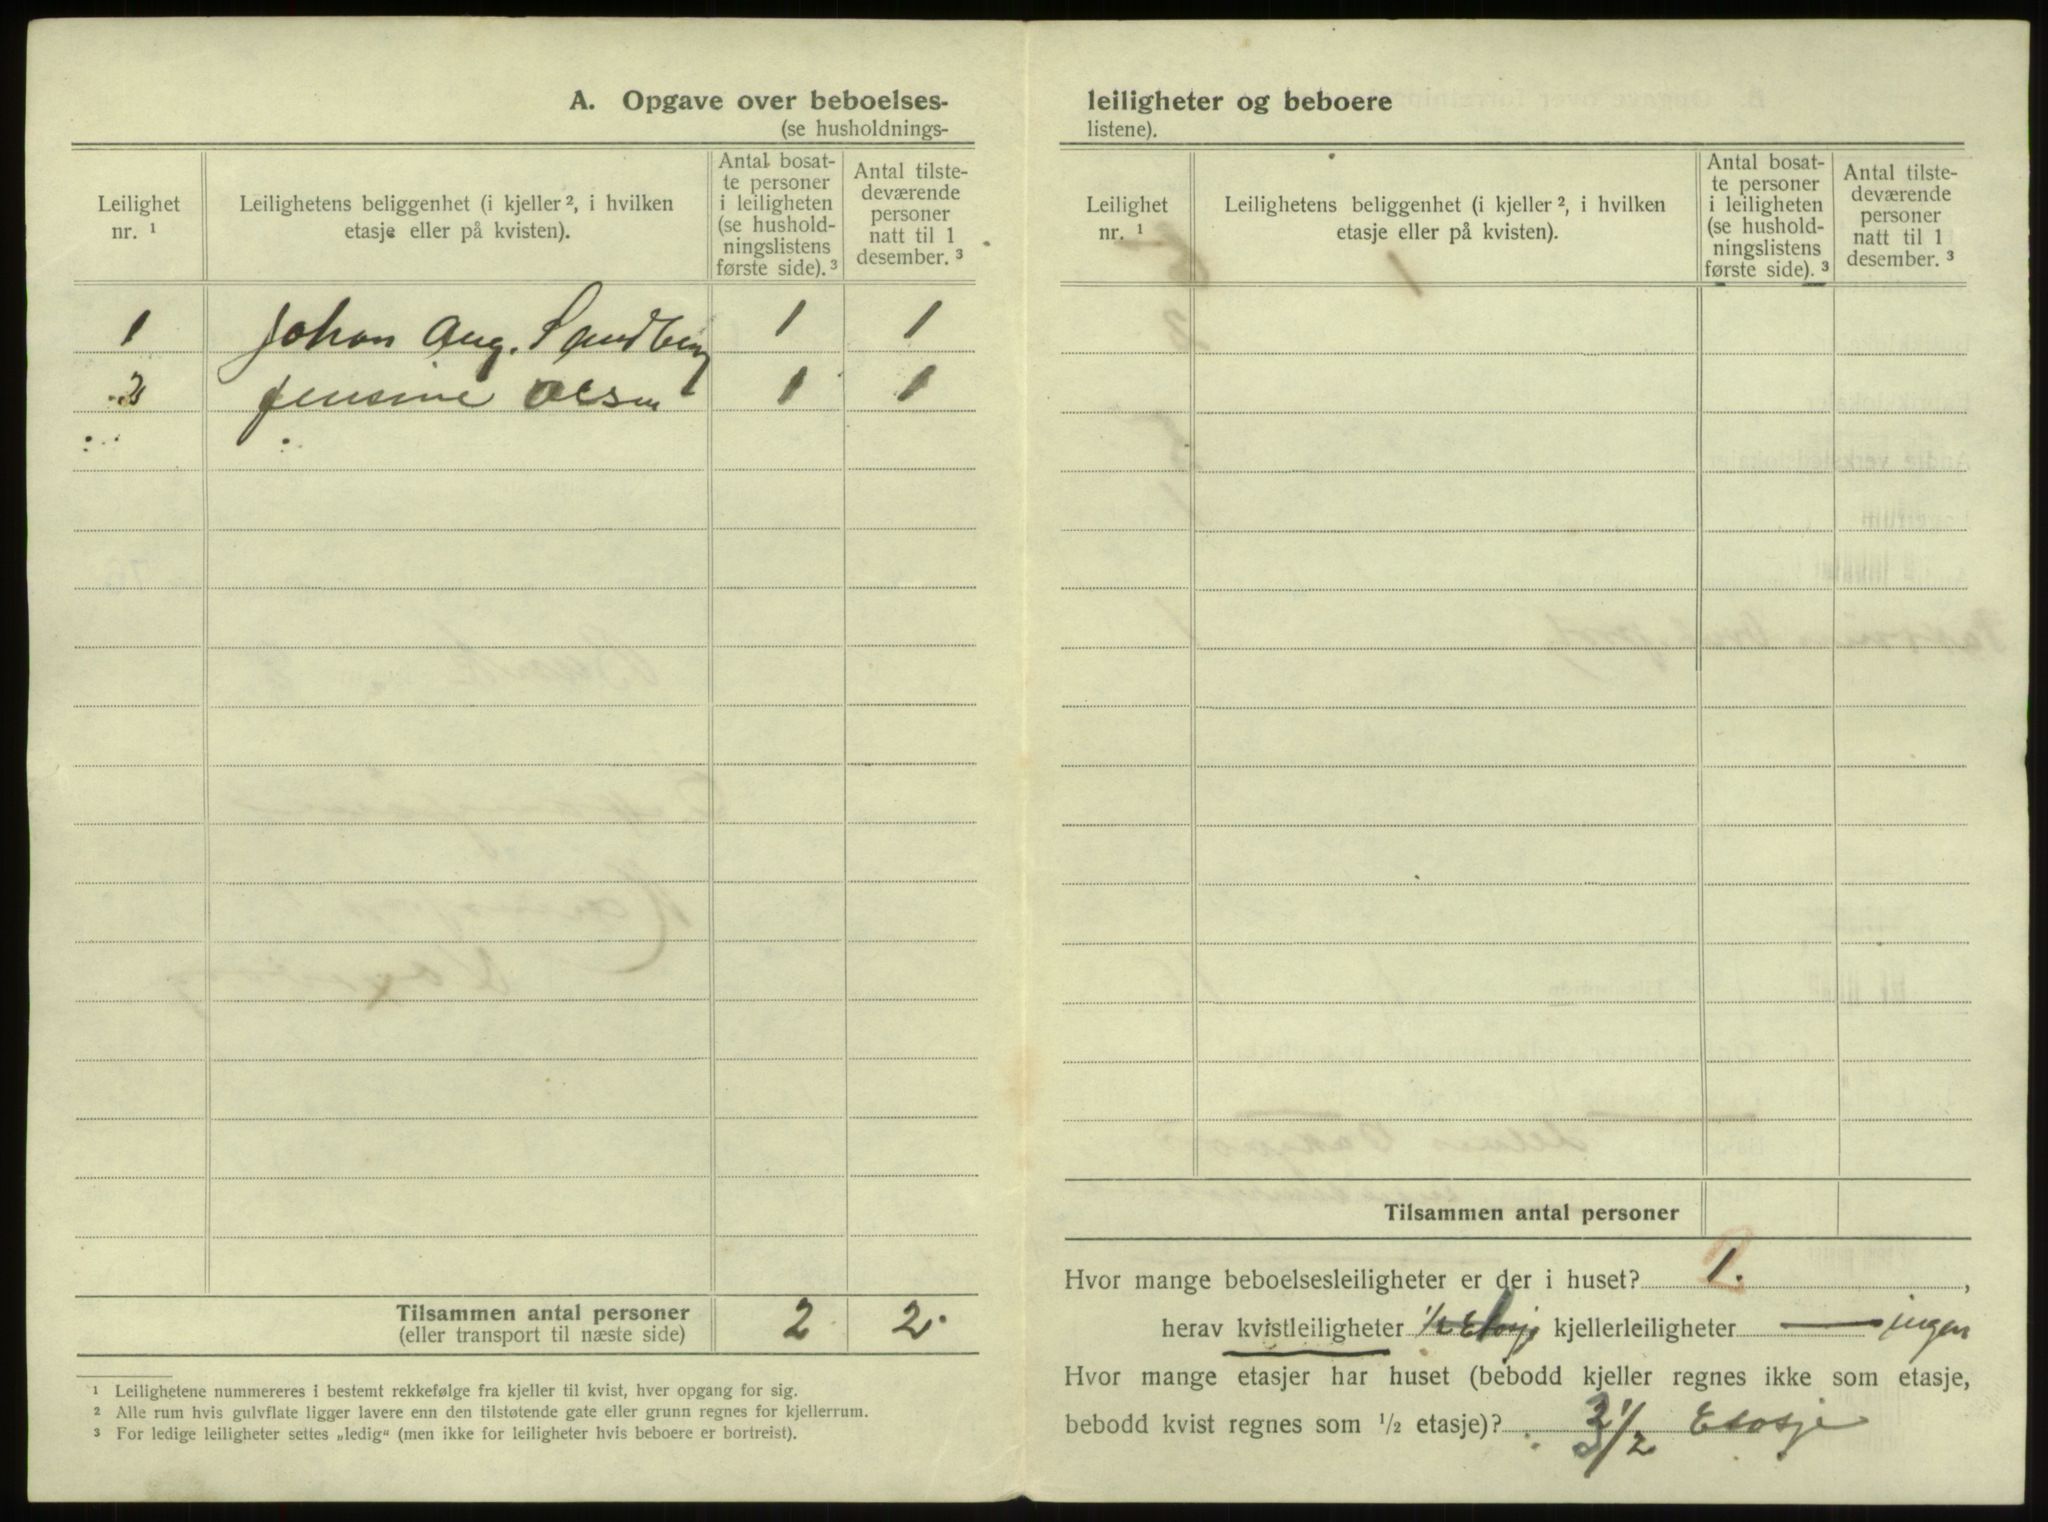 A. Opgave over beboelses-
(se husholdnings-
Leilighet nr. ¹
Leilighetens beliggenhet (i kjeller ², i hvilken etasje eller på kvisten).
Antal bosat-
te personer
i leiligheten
(se hushold-
ningslistens
første side). ³
Antal tilste-
deværende
personer
natt til 1
desember. ³
1 Johan Aug. Sandberg 1 1
2 Jensine Olsen 1 1
Tilsammen antal personer 2 2.
(eller transport til næste side)
¹ Leilighetene nummereres i bestemt rekkefølge fra kjeller til kvist, hver opgang for sig.
² Alle rum hvis gulvflate ligger lavere enn den tilstøtende gate eller grunn regnes for kjellerrum.
³ For ledige leiligheter settes „ledig“ (men ikke for leiligheter hvis beboere er bortreist).
leiligheter og beboere
listene).
Leilighet nr. ¹
Leilighetens beliggenhet (i kjeller ², i hvilken etasje eller på kvisten).
Antal bosat-
te personer
i leiligheten
(se hushold-
ningslistens
første side). ³
Antal tilste-
deværende
personer
natt til 1
desember. ³
Tilsammen antal personer
Hvor mange beboelsesleiligheter er der i huset? 1. 2,
herav kvistleiligheter 1/2 Etasje kjellerleiligheter — ingen
Hvor mange etasjer har huset (bebodd kjeller regnes ikke som etasje,
bebodd kvist regnes som ½ etasje)? 1/2 Etasje